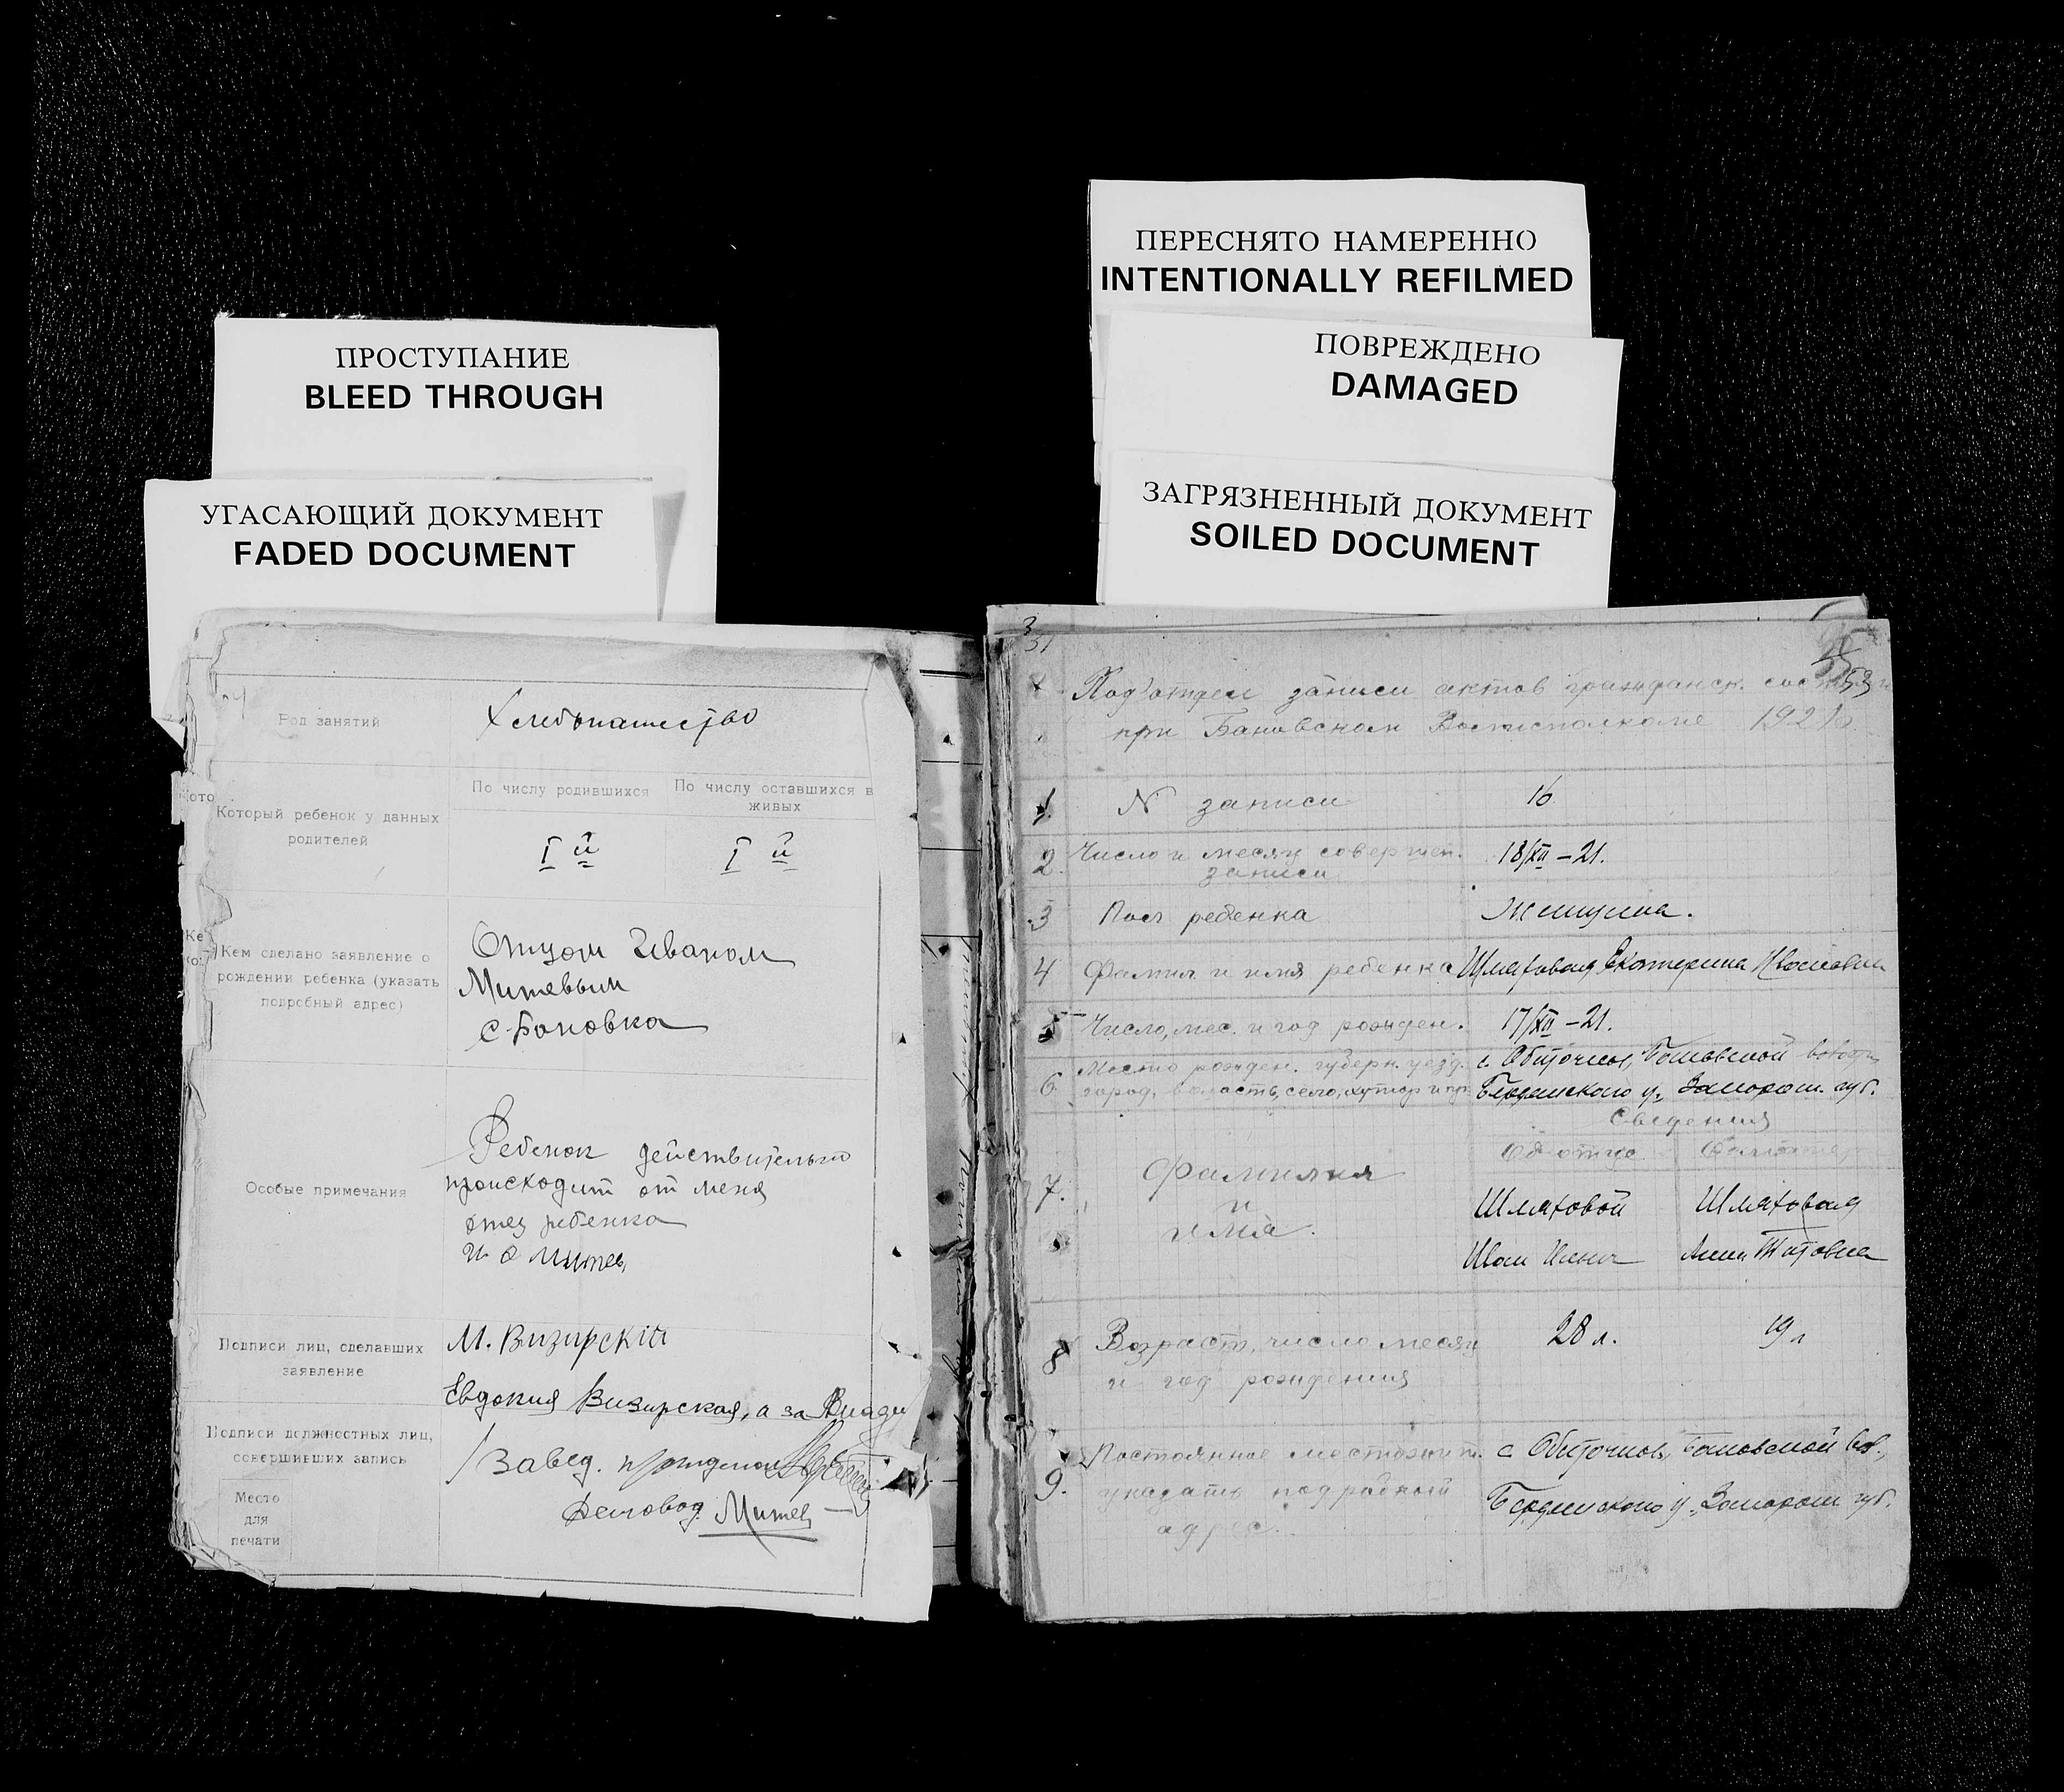 ПРОСТУПАНИЕ
BLEED THROUGH
УГАСАЮЩИЙ ДОКУМЕНТ
FADED DOCUMENT
Род занятий
Хлебопашество
Который ребенок у данных
родителей
По числу родившихся
По числу оставшихся в
живых
I й
I й
Кем сделано заявление о
рождении ребенка (указать
подробный адрес)
Отцом Иваном
Митевым
с. Бановка
Особые примечания
Ребенок действительно
происходит от меня
отец ребенка
И Ф Митев
Подписи лиц, сделавших
заявление
М. Визирскій
Евдокия Визирская, а за
Подписи должностных лиц,
совершивших запись
Завед.
Деловод. Митев
Место
для
печати
ПЕРЕСНЯТО НАМЕРЕННО
INTENTIONALLY REFILMED
ПОВРЕЖДЕНО
DAMAGED
ЗАГРЯЗНЕННЫЙ ДОКУМЕНТ
SOILED DOCUMENT
31
53
Под'отдел записи актов гражданск.
при Бановском Волисполкоме 1921
1. N записи 16
2. Число и месяц совершен. 18/XII – 21.
записи
3 Пол ребенка Женщина.
4 Фамил и имя ребенка Шляховая Екатерина Ивановна
5 Число, мес. и год рожден. 17/XII – 21.
6 Место рожден. губерн. уезд. с Обиточное, Бановской
город, волость, село, хутор и пр. Бердянского у., Запорож. губ.
Сведения
Об отце
О матер
7. Фамилия
и
имя.
Шляховой
Иван
Шляховая
Анна Титовна
8 Возраст, число месяц 28 л. 19 л
и год рождения
9. Постоянное местожит. с Обиточное, Бановской вол.,
указать подробный Бердянского у., Запорож губ.
адрес.